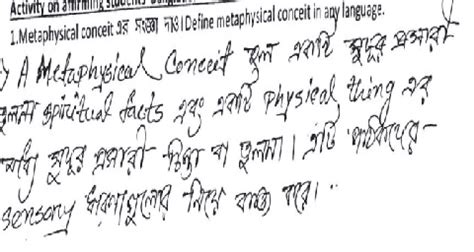 Activity on affirming students'
1.Metaphysical conceit এর সংজ্ঞা দাও। Define metaphysical conceit in any language.
A Metaphysical Conceit হল একটি সুদূর প্রসারী
তুলনা spiritual facts এবং একটি physical thing এর
মধ্যে সুদূর প্রসারী চিন্তা বা তুলনা। এটি পাঠকদের
sensory ধারণাগুলোর নিয়ে কাজ করে।